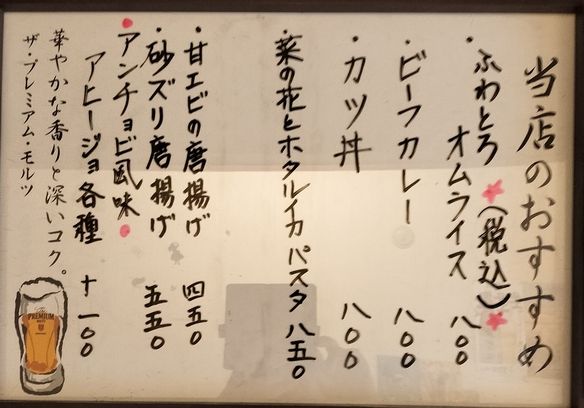 当店のおすすめ
(税込)
・ふわとろオムライス 八〇〇
・ビーフカレー 八〇〇
・カツ丼 八〇〇
・菜の花とホタルイカパスタ 八五〇
・甘エビの唐揚げ 四五〇
・砂ズリ唐揚げ 五五〇
・アンチョビ風味
アヒージョ各種 十一〇〇
華やかな香りと深いコク。
ザ・プレミアム・モルツ
The PREMIUM